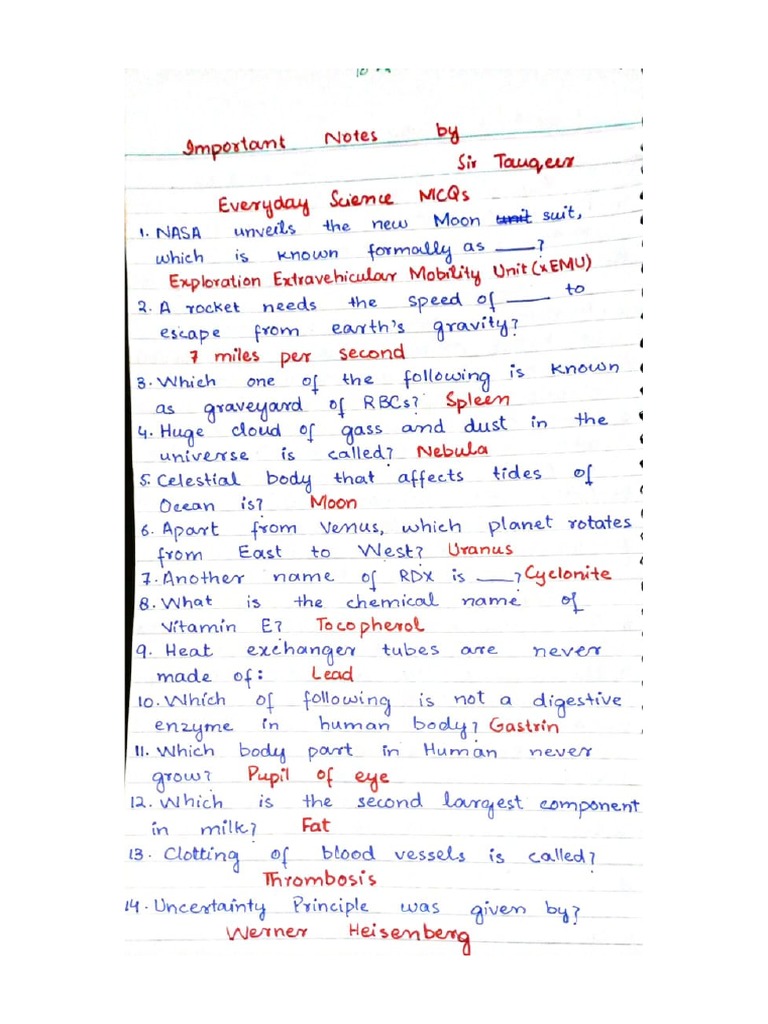 Important Notes by
Sir Tauqeer
Everyday Science MCQs
1. NASA unveils the new Moon unit suit,
which is known formally as ____?
Exploration Extravehicular Mobility Unit (xEMU)
2. A rocket needs the speed of ____ to
escape from earth's gravity?
7 miles per second
3. Which one of the following is known
as graveyard of RBCs? Spleen
4. Huge cloud of gass and dust in the
universe is called? Nebula
5. Celestial body that affects tides of
Ocean is? Moon
6. Apart from Venus, which planet rotates
from East to West? Uranus
7. Another name of RDX is ____? Cyclonite
8. What is the chemical name of
Vitamin E? Tocopherol
9. Heat exchanger tubes are never
made of: Lead
10. Which of following is not a digestive
enzyme in human body? Gastrin
11. Which body part in Human never
grow? Pupil of eye
12. Which is the second largest component
in milk? Fat
13. Clotting of blood vessels is called?
Thrombosis
14. Uncertainty Principle was given by?
Werner Heisenberg